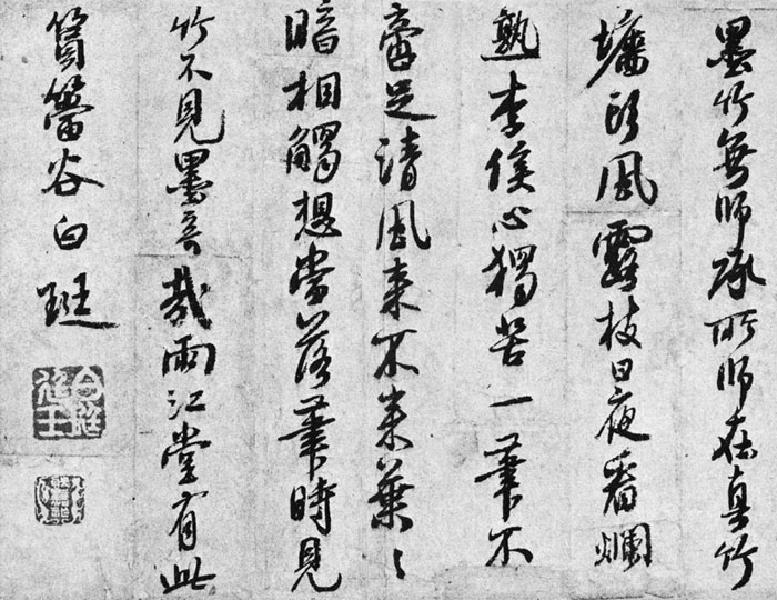 墨竹無師承所師在真竹
墻頭風露枝日夜看爛
熟李侯心獨苦一筆不
啻足清風来不来葉〻
暗相觸想當落筆時見
竹不見墨奇哉兩江堂有此
篔簹谷白珽